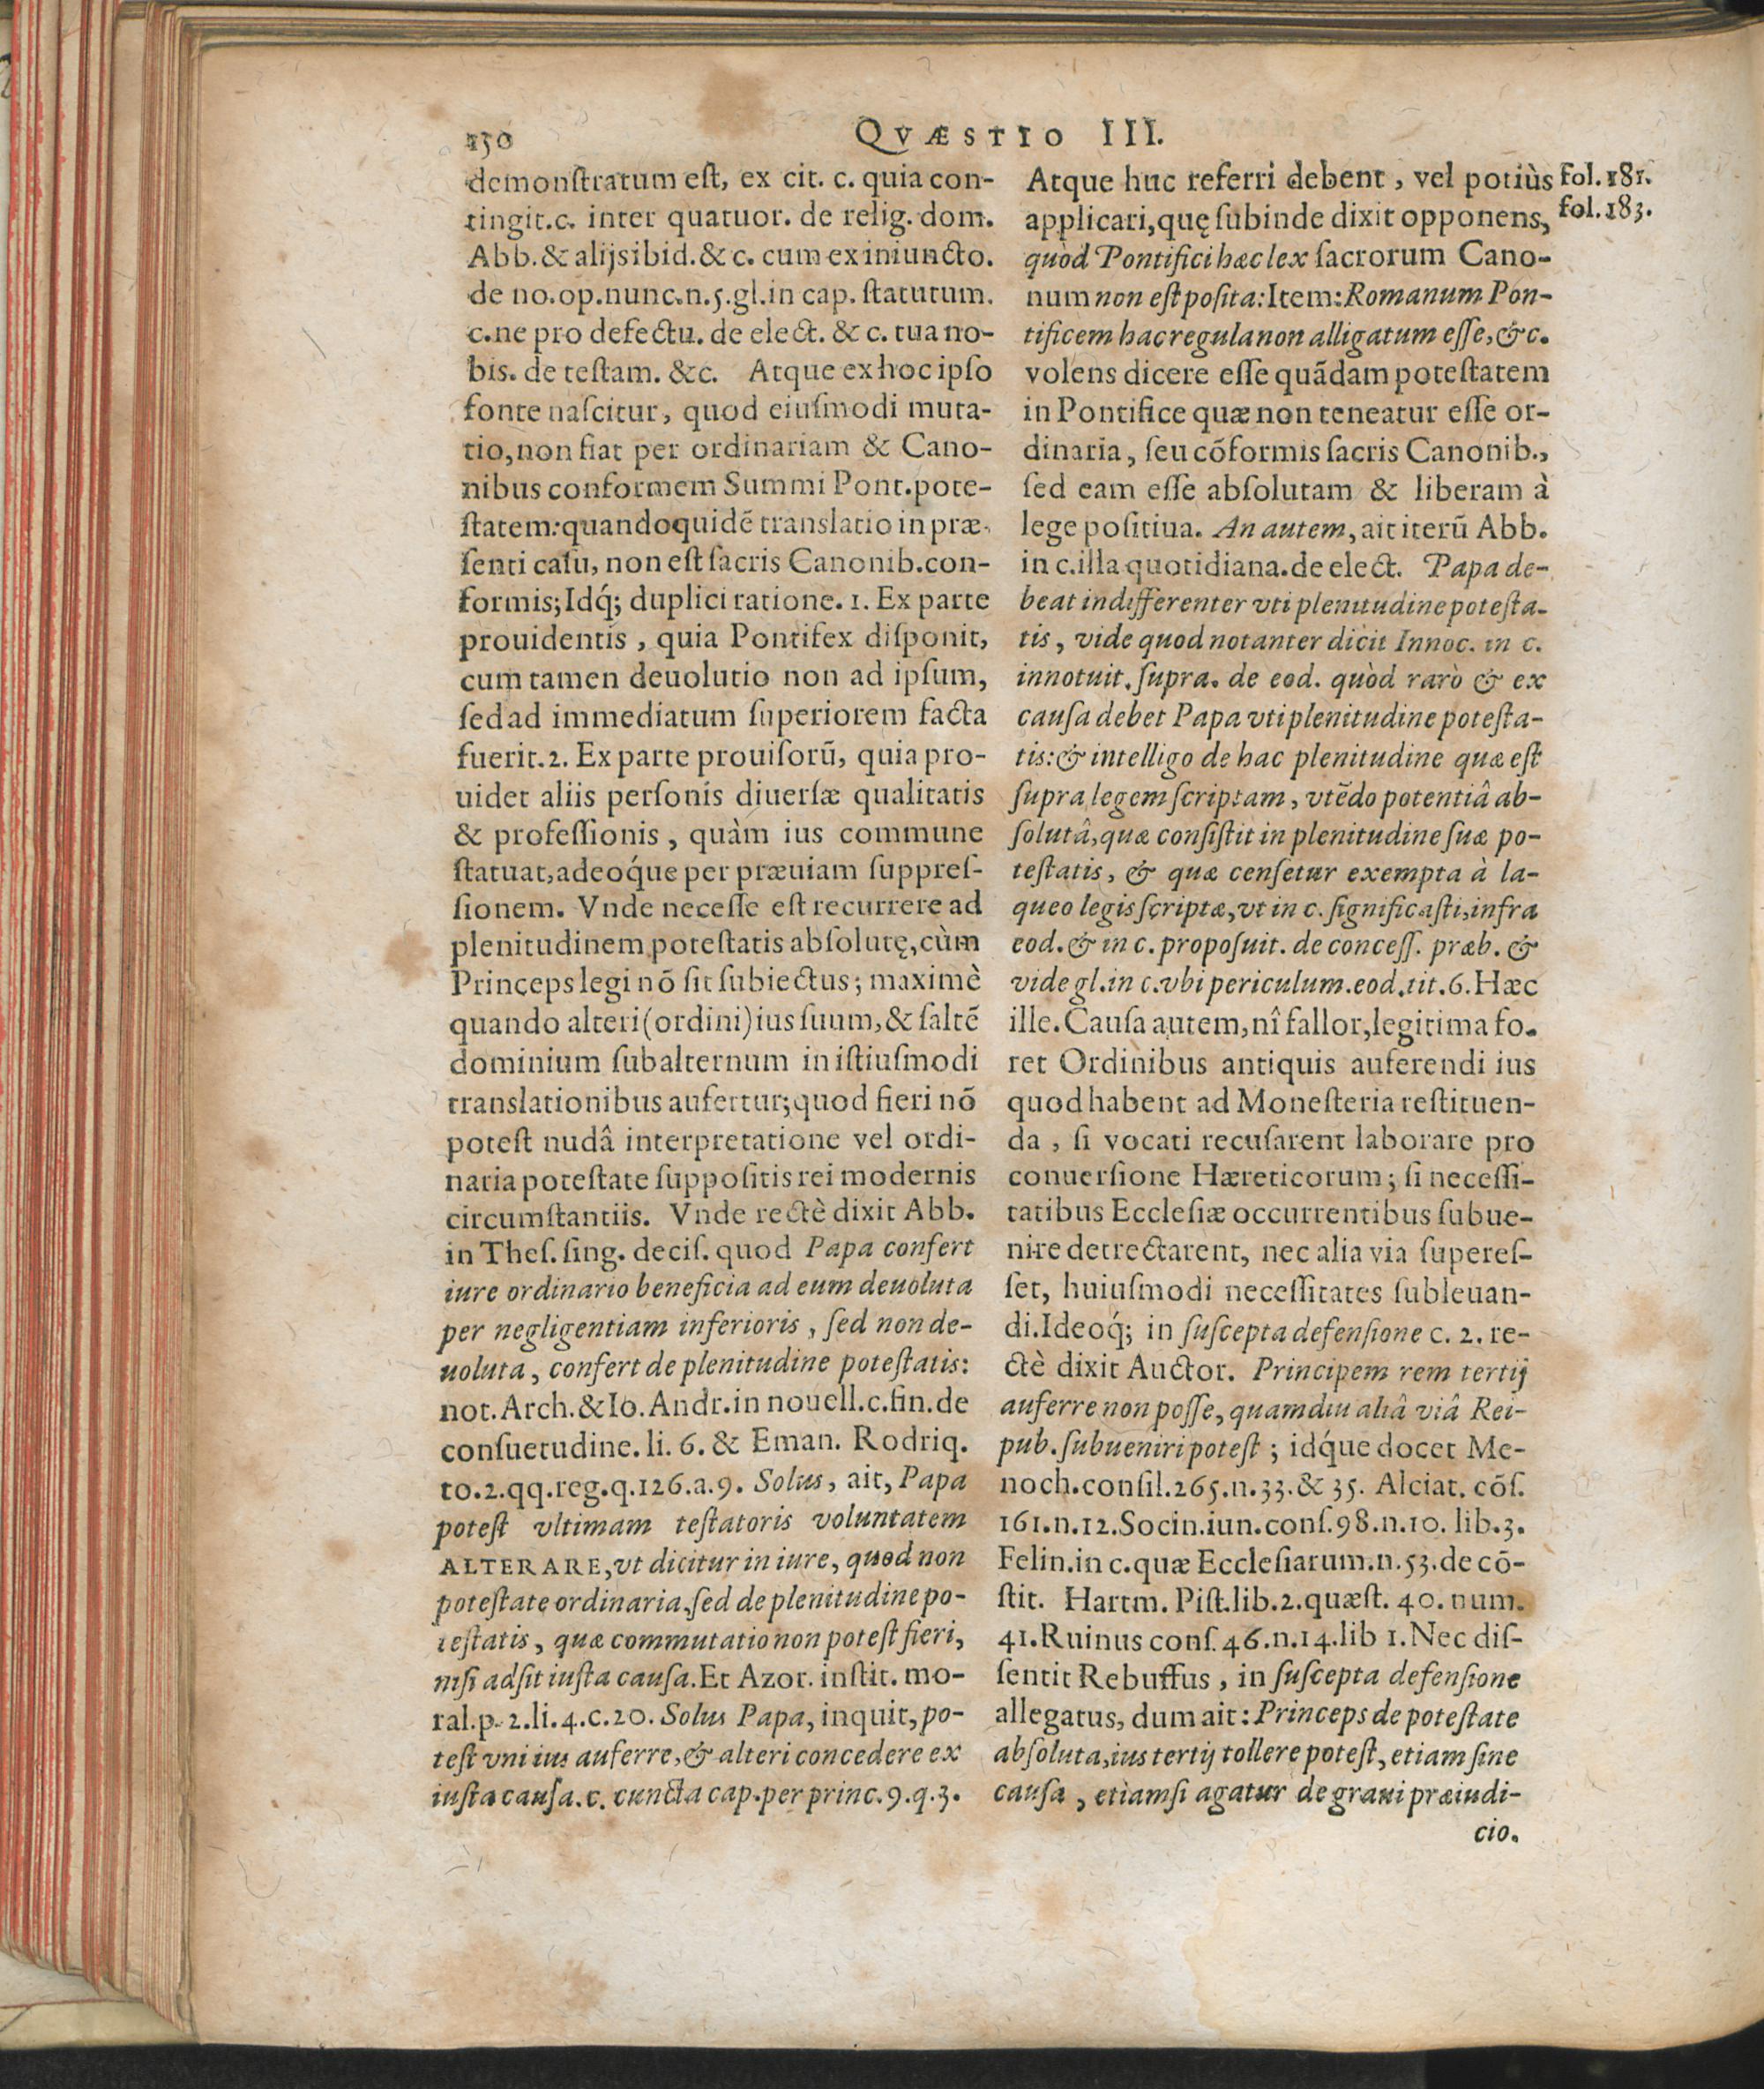 150
QVÆSTIO III.
demonſtratum eſt, ex cit. c. quia con-
tingit.c. inter quatuor. de relig. dom.
Abb.& alijs ibid.& c. cum ex iniuncto.
de no.op.nunc.n.5.gl.in cap. ſtatutum.
c.ne pro defectu. de elect. & c. tua no-
bis. de teſtam. &c. Atque ex hoc ipſo
fonte naſcitur, quod eiuſmodi muta-
tio,non fiat per ordinariam & Cano-
nibus conformem Summi Pont.pote-
ſtatem:quandoquidē translatio in præ-
ſenti caſu, non eſt ſacris Canonib.con-
formis;Idq́; duplici ratione. 1. Ex parte
prouidentis , quia Pontifex diſponit,
cum tamen deuolutio non ad ipſum,
ſed ad immediatum ſuperiorem facta
fuerit.2. Ex parte prouiſorū, quia pro-
uidet aliis perſonis diuerſæ qualitatis
& profeſſionis , quàm ius commune
ſtatuat,adeoq́ue per præuiam ſuppreſ-
ſionem. Vnde neceſſe eſt recurrere ad
plenitudinem poteſtatis abſolutę,cùm
Princeps legi nō ſit ſubiectus; maximè
quando alteri(ordini)ius ſuum,& ſaltē
dominium ſubalternum in iſtiuſmodi
translationibus aufertur;quod fieri nō
poteſt nudâ interpretatione vel ordi-
naria poteſtate ſuppoſitis rei modernis
circumſtantiis. Vnde rectè dixit Abb.
in Theſ. ſing. deciſ. quod Papa confert
iure ordinario beneficia ad eum deuoluta
per negligentiam inferioris , ſed non de-
uoluta , confert de plenitudine poteſtatis:
not. Arch.&Io. Andr.in nouell.c.fin.de
conſuetudine. li. 6. & Eman. Rodriq.
to.2.qq.reg.q.126.a.9. Solus, ait, Papa
poteſt vltimam teſtatoris voluntatem
ALTERARE,vt dicitur in iure, quod non
poteſtate ordinaria,ſed de plenitudine po-
teſtatis, quæ commutatio non poteſt fieri,
niſi adſit iuſta cauſa.Et Azor. inſtit. mo-
ral.p. 2.li.4.c.20. Solus Papa, inquit, po-
teſt vni ius auferre,& alteri concedere ex
iuſta cauſa. c. cuncta cap.per princ.9.q.3.
Atque huc referri debent , vel potiùs
applicari,quę ſubinde dixit opponens,
quòd Pontifici hæc lex ſacrorum Cano-
num non eſt poſita: Item: Romanum Pon-
tificem hac regula non alligatum eſſe,&c.
volens dicere eſſe quādam poteſtatem
in Pontifice quæ non teneatur eſſe or-
dinaria, ſeu cōformis ſacris Canonib.,
ſed eam eſſe abſolutam & liberam à
lege poſitiua. An autem, ait iterū Abb.
in c.illa quotidiana.de elect. Papa de-
beat indifferenter vti plenitudine poteſta-
tis, vide quod notanter dicit Innoc. in c.
innotuit. ſupra. de eod. quòd rarò & ex
cauſa debet Papa vti plenitudine poteſta-
tis:& intelligo de hac plenitudine quæ eſt
ſupra legem ſcriptam , vtēdo potentiâ ab-
ſolutâ,quæ conſiſtit in plenitudine ſuæ po-
teſtatis, & quæ cenſetur exempta à la-
queo legis ſcriptæ,vt in c. ſignificaſti,infra
eod.& in c. propoſuit. de conceſſ. præb. &
vide gl.in c.vbi periculum.eod.tit.6. Hæc
ille. Cauſa autem, nî fallor,legitima fo-
ret Ordinibus antiquis auferendi ius
quod habent ad Moneſteria reſtituen-
da , ſi vocati recuſarent laborare pro
conuerſione Hæreticorum; ſi neceſſi-
tatibus Eccleſiæ occurrentibus ſubue-
nire detrectarent, nec alia via ſupereſ-
ſet, huiuſmodi neceſſitates ſubleuan-
di. Ideoq́; in ſuſcepta defenſione c. 2. re-
ctè dixit Auctor. Principem rem tertij
auferre non poſſe, quamdiu aliâ viâ Rei-
pub. ſubueniri poteſt ; idq́ue docet Me-
noch.conſil.265.n.33.& 35. Alciat. cōſ.
161.n.12.Socin.iun.conſ.98.n.10. lib.3.
Felin.in c.quæ Eccleſiarum.n.53.de cō-
ſtit. Hartm. Piſt.lib.2.quæſt. 40. num.
41.Ruinus conſ.46.n.14.lib 1.Nec diſ-
ſentit Rebuffus , in ſuſcepta defenſione
allegatus, dum ait: Princeps de poteſtate
abſoluta,ius tertij tollere poteſt, etiam ſine
cauſa , etiamſi agatur de graui præiudi-
cio.
fol. 181.
fol. 183.